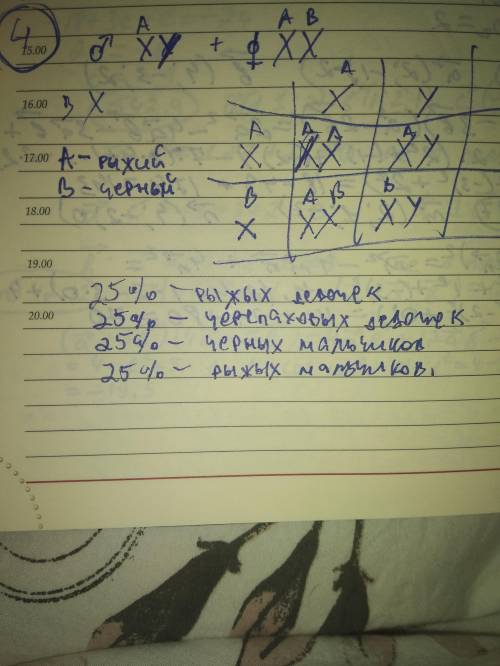 4
A A B
15.00 ♂ XY + ♀ XX
A
16.00 B X X Y
A A A A
17.00 А - рыжий X XX XY
В - черный B A B B
18.00 X XX XY
19.00
25% - рыжых девочек
20.00 25% - черепаховых девочек
25% - черных мальчиков
25% - рыжых мальчиков.